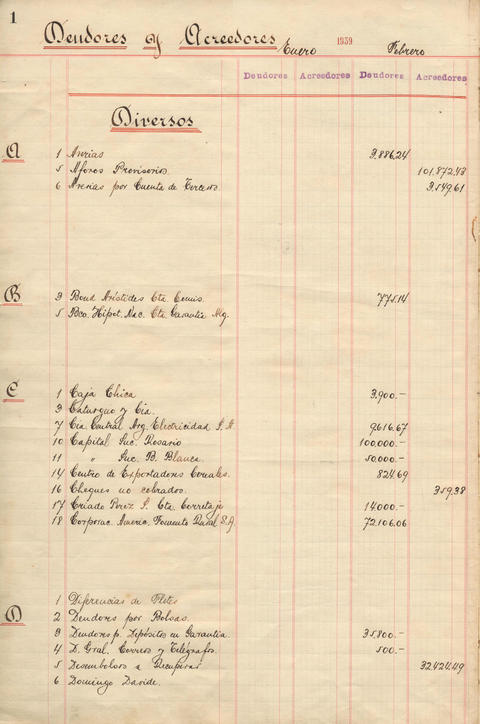 1
Deudores y Acreedores
Enero 1939 Febrero
Deudores Acreedores Deudores Acreedores
Diversos
A 1 Averias 3.886,24
5 Aforos Provisorios 101.872.43
6 Averias por Cuenta de Terceros 3.549,61
B 3 Bond Arístides Cta. Comis. 775.14
5 Bco. Hipot. Nac. Cta Garantía Alq.
C 1 Caja Chica 3.900.-
3 y Cia.
7 Cia Central Arg. Electricidad S.A 9.616.67
10 Capital Suc. Rosario 100,000.-
11 " Suc. B. Blanca. 50,000.-
14 Centro de Exportadores Cereales. 824.69
16 Cheques no cobrados. 359.38
17 Criado Perez S. Cta. Corretaje 14000.-
18 Corporac. Americ. Fomento Rural S.A 72.106.06
D 1 Diferencias de Fletes
2 Deudores por Bolsas.
3 Deudores p. Depósitos en Garantia. 35.800.-
4 D. Gral. Correos y Telégrafos. 500.-
5 Desembolsos a Recuperar 32.424.49
6 Domingo Davide.